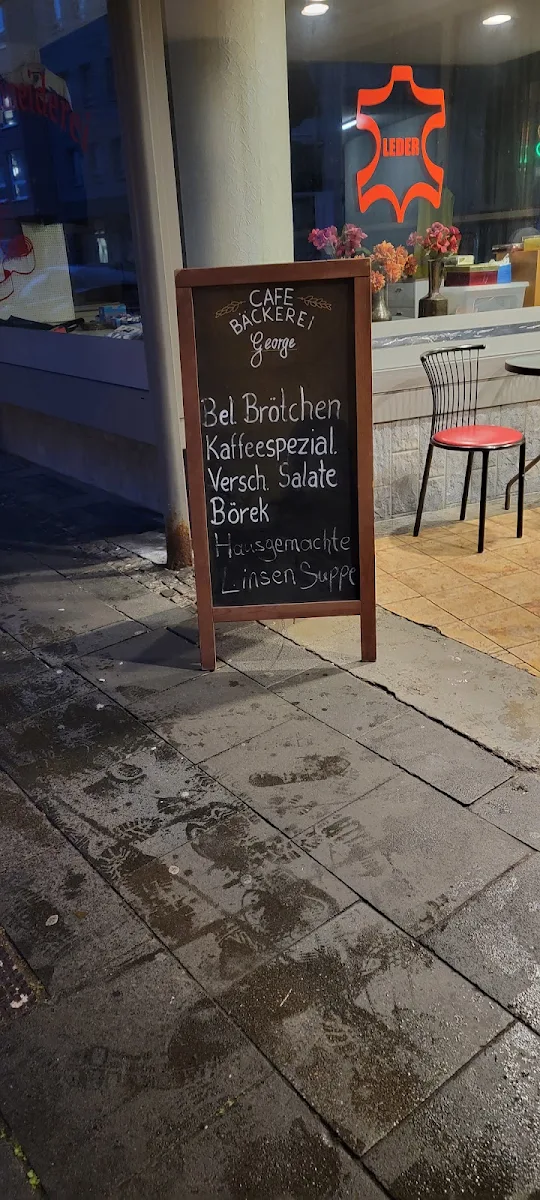 LEDER
CAFE
BÄCKEREI
George
Bel Brötchen
Kaffeespezial.
Versch. Salate
Börek
Hausgemachte
Linsen Suppe